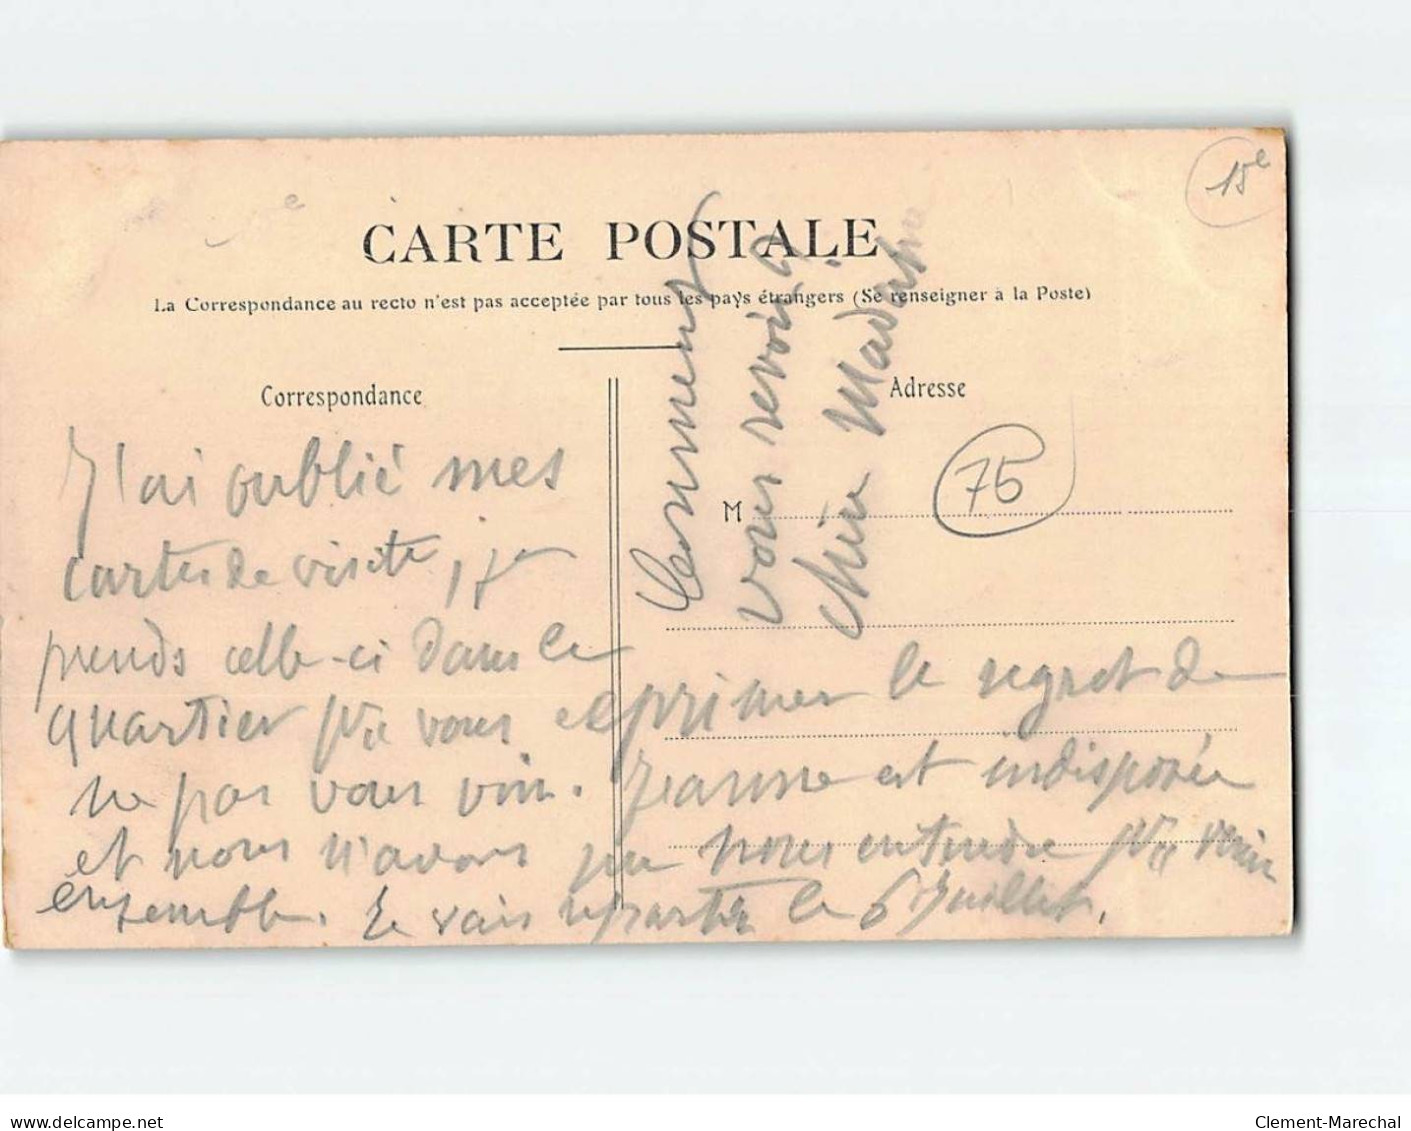 15e
CARTE POSTALE
La Correspondance au recto n'est pas acceptée par tous les pays étrangers (Se renseigner à la Poste)
Correspondance
Adresse
M
75
J'ai oublié mes
cartes de visite, je
prends celle-ci dans le
quartier pr vous exprimer le regret de
ne pas vous voir. Jeanne est indisposée
et nous n'avons pu nous entendre pr venir
ensemble. Je vais repartir le 6 Juillet.
Comment
vous revoir ?
chère Madame
www.delcampe.net
Clement-Marechal